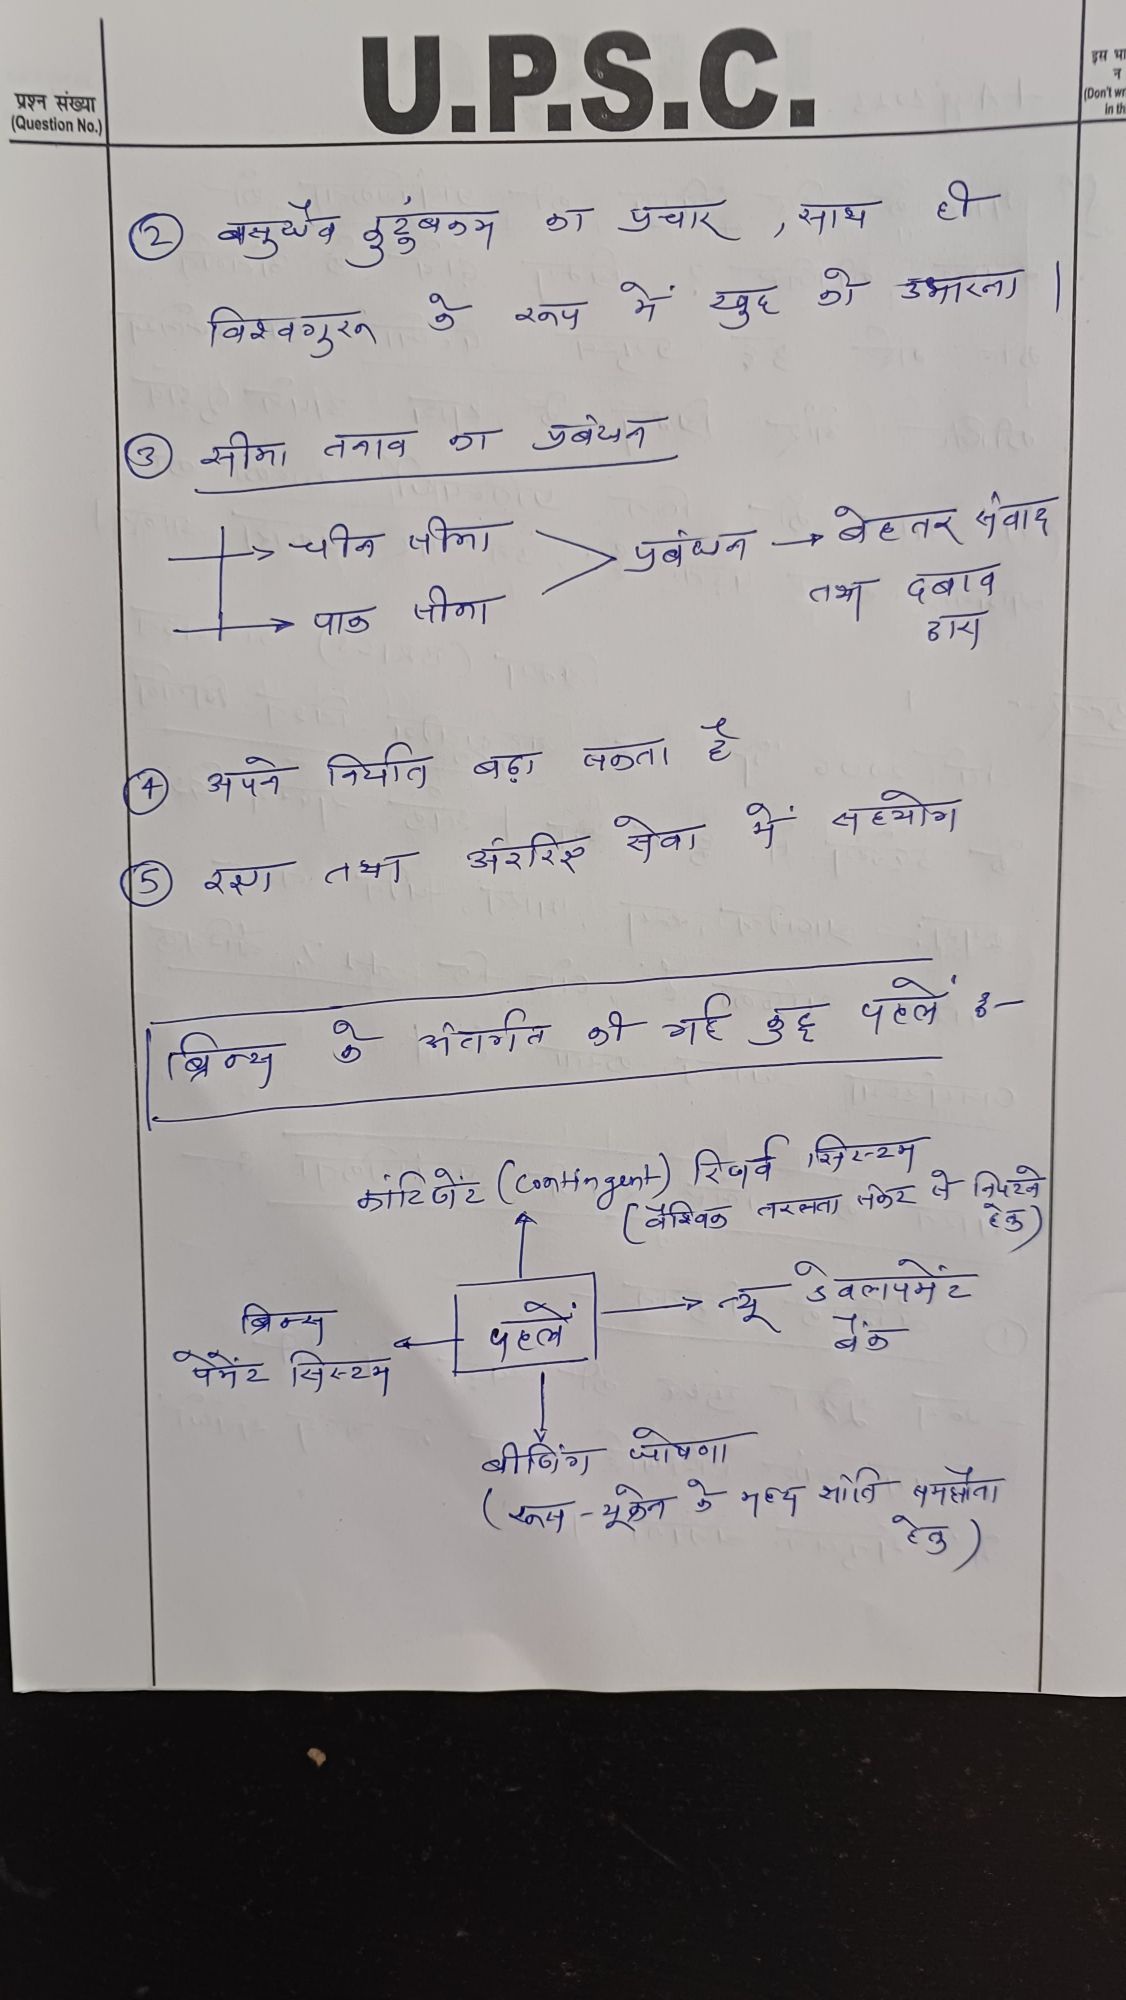 U.P.S.C.
प्रश्न संख्या
(Question No.)
इस भा
न
(Don't wr
in th
② वसुधैव कुटुंबकम का प्रचार, साथ ही
विश्वगुरु के रूप में खुद को उभारना।
③ सीमा तनाव का प्रबंधन
→ चीन सीमा
→ पाक सीमा
प्रबंधन → बेहतर संवाद
तथा दबाव
द्वारा
④ अपने निर्यात बढ़ा सकता है
⑤ रक्षा तथा अंतरिक्ष सेवा में सहयोग
ब्रिक्स के अंतर्गत की गई कुछ पहलें :-
कांटिजेंट (Contingent) रिजर्व सिस्टम
(वैश्विक तरलता संकट से निपटने
हेतु)
पहलें
→ न्यू डेवलपमेंट
बैंक
ब्रिक्स
पेमेंट सिस्टम
बीजिंग घोषणा
(रूस-यूक्रेन के मध्य शांति समझौता
हेतु)